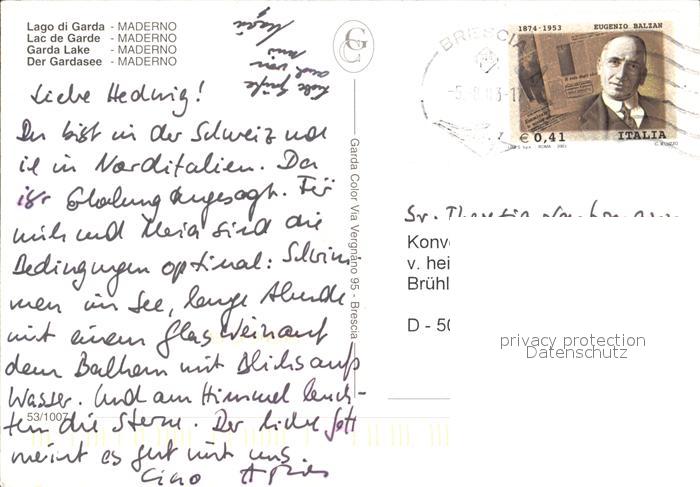 Lago di Garda - MADERNO
Lac de Garde - MADERNO
Garda Lake - MADERNO
Der Gardasee - MADERNO
Liebe Grüße
auch von
Maria
Liebe Hedwig!
Du bist in der Schweiz und
ic in Norditalien. Da
ist Erholung angesagt. Für
mich und Maria sind die
Bedingungen optimal: Schwim-
men im See, lange Abende
mit einem Glas Wein auf
dem Balkon mit Blick aufs
Wasser. Und am Himmel leuch-
ten die Sterne. Der liebe Gott
meint es gut mit uns.
Ciao
53/1007
Garda Color Via Vergnano 95 - Brescia
GC
BRESCIA
1874 - 1953 EUGENIO BALZAN
€ 0,41 ITALIA
Sr. Theresia
Konv
v. hei
Brühl
D - 50
privacy protection
Datenschutz